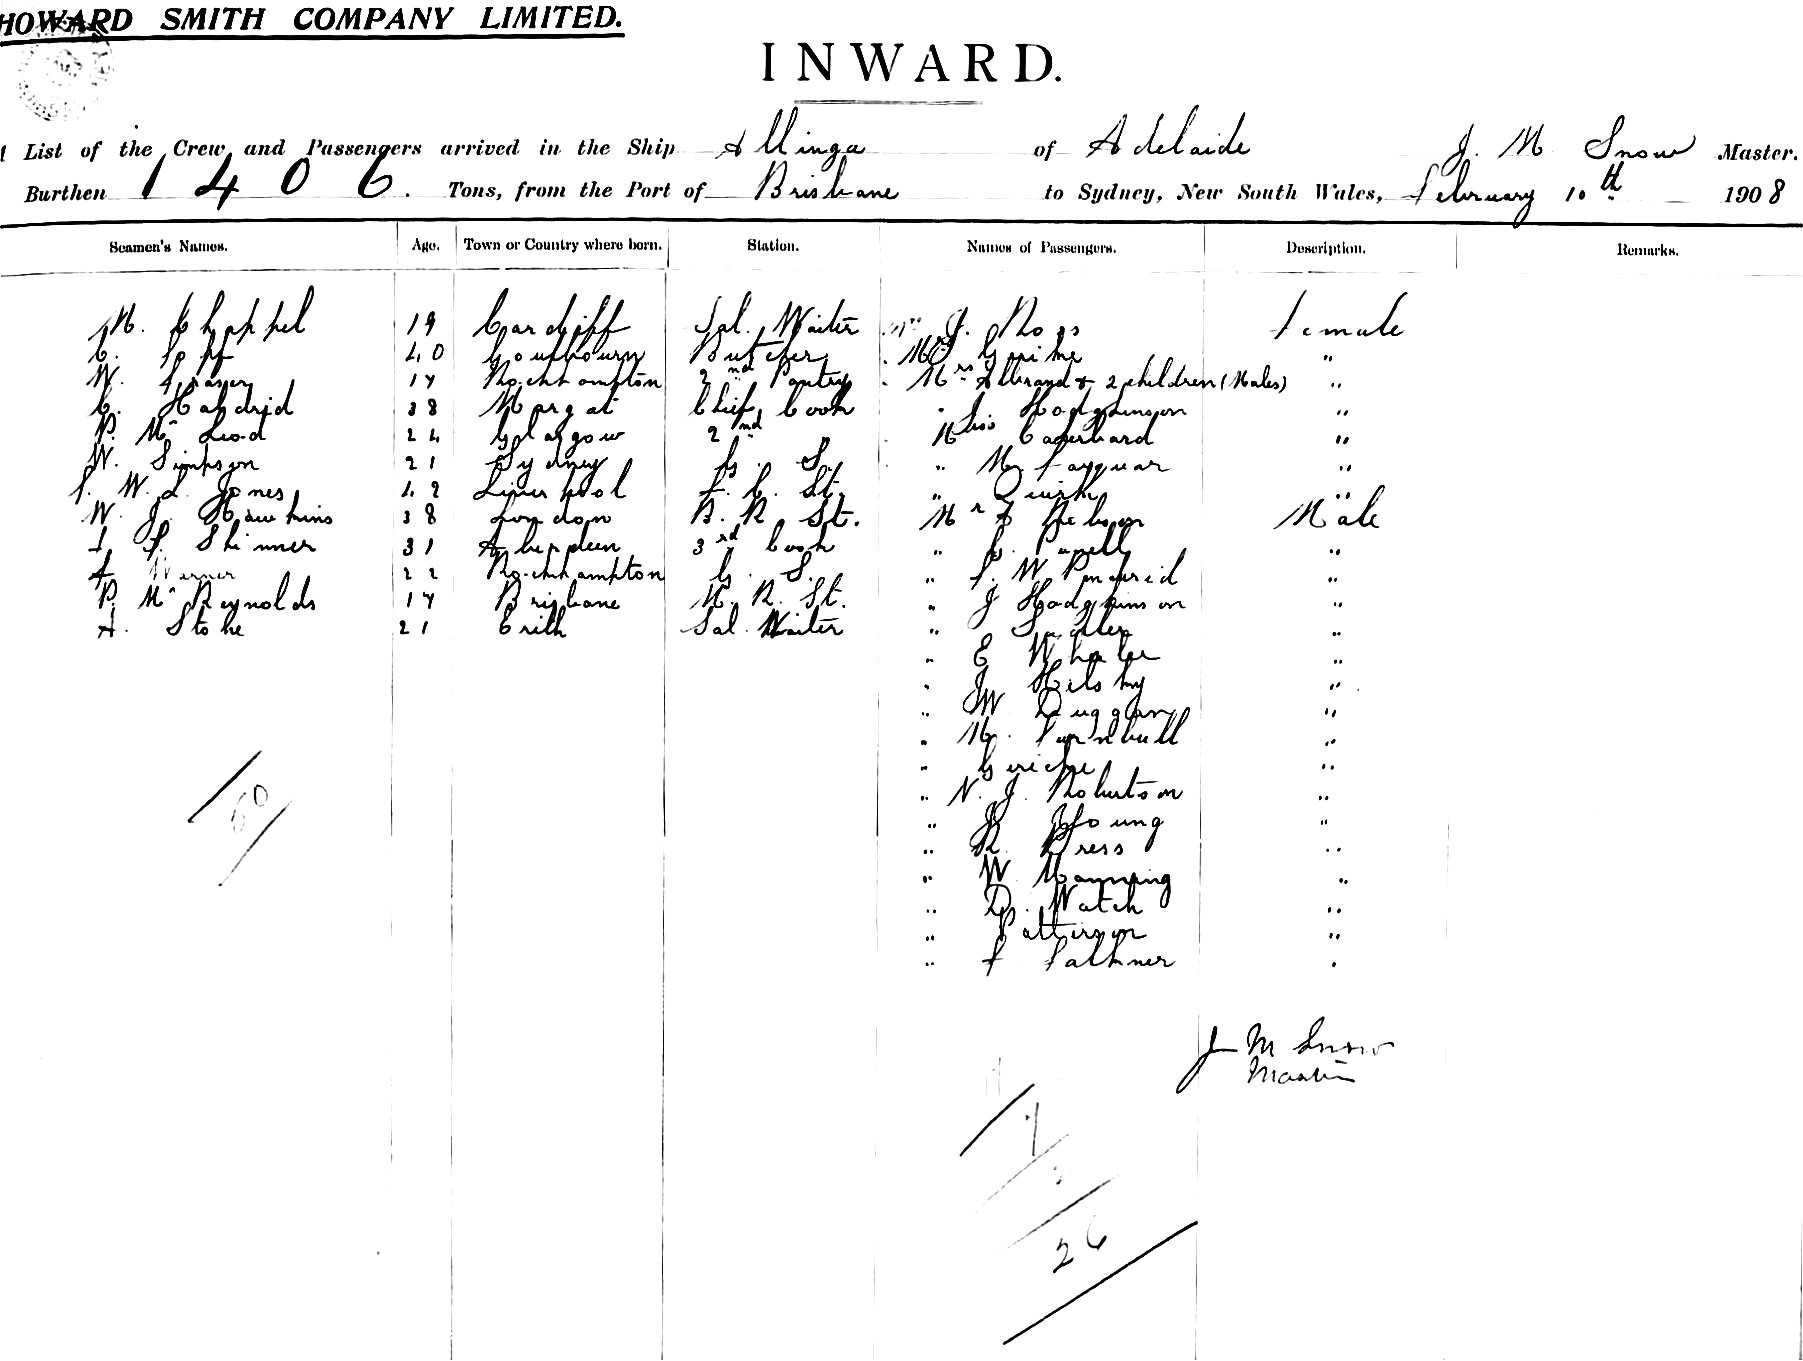 HOWARD SMITH COMPANY LIMITED.
INWARD.
List of the Crew and Passengers arrived in the Ship Allinga of Adelaide J. M Snow Master.
Burthen 1406. Tons, from the Port of Brisbane to Sydney, New South Wales, February 10th 1908
Seamen's Names. Age. Town or Country where born. Station. Names of Passengers. Description. Remarks.
M. Chappel 19 Cardiff Sal. Waiter Mrs J. Ross Female
C. 40 Goulbourn Butcher "
W. Fraser 17 Rockhampton 2nd Pantry Mrs & 2 children (Males) "
C. 38 Margat Chief Cook " Hodgkinson "
P. Mc Leod 24 Glasgow 2nd " Miss "
W. Simpson 21 Sydney G. S. " "
W. L. Jones 42 Liverpool F. C. St. " Quirk "
W. J. Hawkins 38 London B. R. St. Mr Male
Skinner 31 Aberdeen 3rd Cook " "
Werner 22 Rockhampton G. S. " W "
P. Mc Reynolds 17 Brisbane M. R. St. " J Hodgkinson "
A. Stone 21 Erith Sal. Waiter " "
" E Whaler "
" J "
" W Duggan "
" M. Turnbull "
" Gericke "
" N. J. Robertson "
" Young "
" R. Press "
" W Manning "
" D. Watch "
" Patterson "
" F Falkner "
J M Snow
Master
60
26